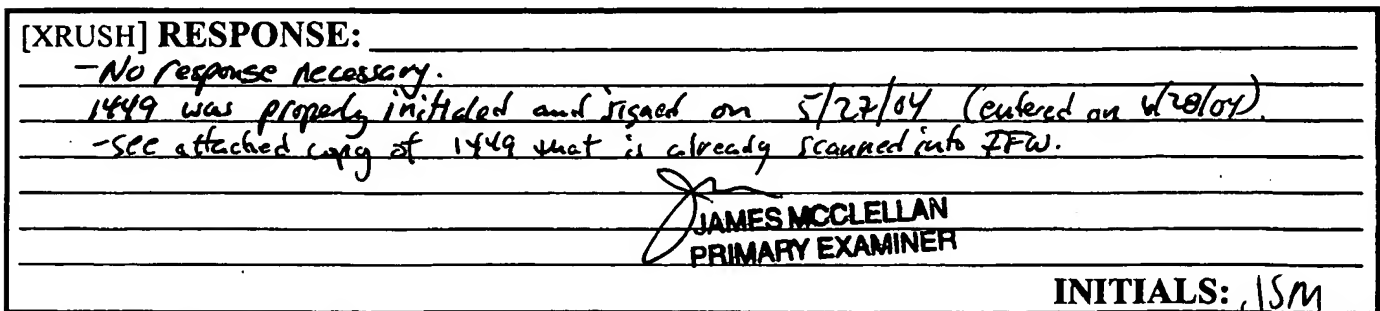 [XRUSH] RESPONSE:
-No response necessary.
1449 was properly initialed and signed on 5/27/04 (entered on 6/28/04).
-see attached copy of 1449 that is already scanned into IFW.
JAMES MCCLELLAN
PRIMARY EXAMINER
INITIALS: JSM